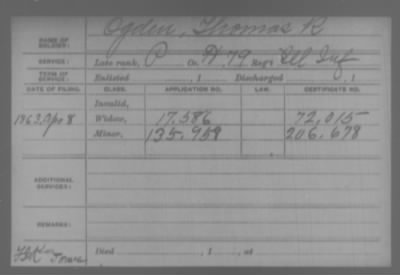 NAME OF SOLDIER: Ogden, Thomas R
SERVICE: Late rank, P Co. H 79 Reg't Ill Inf
TERM OF SERVICE: Enlisted , 1 Discharged , 1
DATE OF FILING. CLASS. APPLICATION NO. LAW. CERTIFICATE NO.
Invalid,
1863 Apr 8 Widow, 17.586 72,015
Minor, 135.958 206.678
ADDITIONAL SERVICES:
REMARKS:
Died , 1 , at